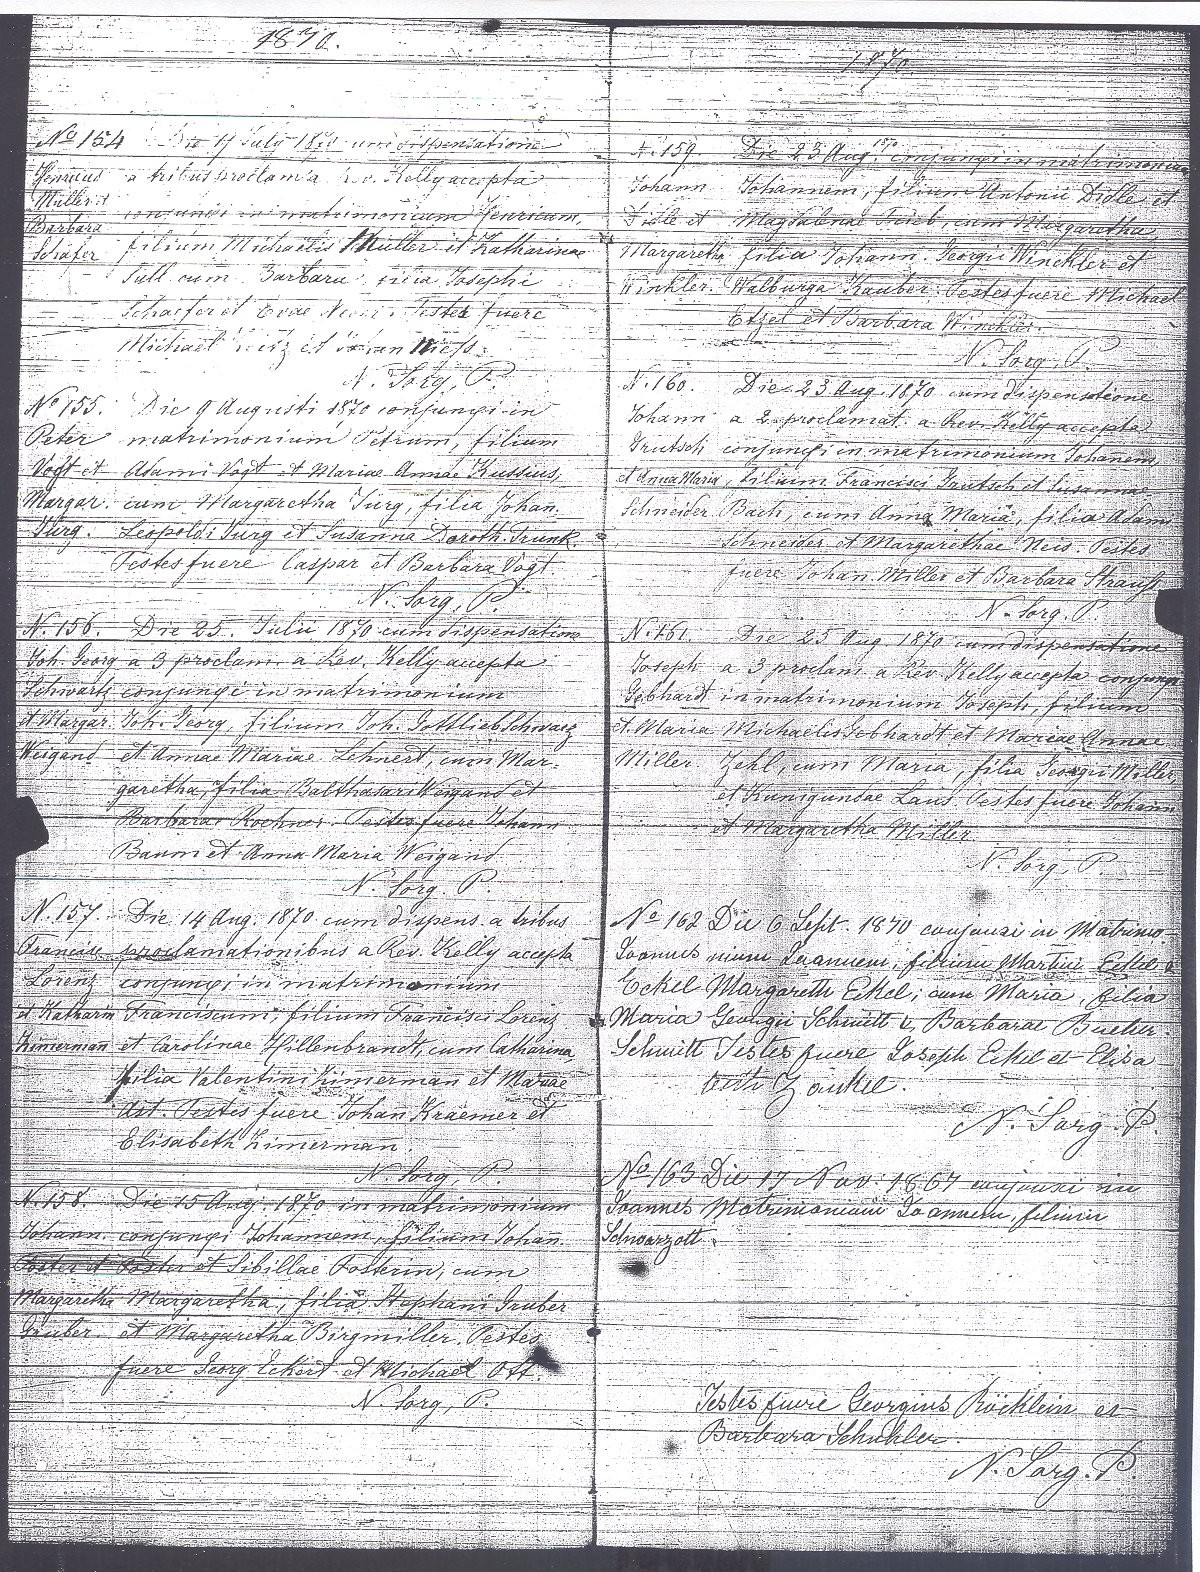 1870.
No 154 Die 17 July 1870 cum dispensatione
Henricus a tribus proclama Rev. Kelly accepta
Muller et conjungi in matrimonium Henricum,
Barbara filium Michaelis Muller et Katharinae
Schäfer Full cum Barbara filia Josephi
Schaefer et Evae Testes fuere
Michael et
N. Sorg, P.
No 155. Die 9 Augusti 1870 conjungi in
Peter matrimonium Petrum, filium
Vogt et Adami Vogt et Mariae Annae Kussius,
Margar. cum Margaretha Jurg, filia Johan.
Jurg. Leopoldi Jurg et Susanna Doroth. Trunk.
Testes fuere Caspar et Barbara Vogt
N. Sorg, P.
N. 156. Die 25. Julii 1870 cum dispensatione
Joh. Georg a 3 proclam. a Rev. Kelly accepta
Schwartz conjungi in matrimonium
et Margar. Joh. Georg, filium Joh. Gottlieb Schwarz
Weigand et Annae Mariae Lehnert, cum Mar-
garetha, filia Balthasari Weigand et
Barbarae Rochner. Testes fuere Johann
Baum et Anna Maria Weigand
N. Sorg. P.
N. 157. Die 14 Aug. 1870 cum dispens. a tribus
Francisc proclamationibus a Rev. Kelly accepta
Lorenz conjungi in matrimonium
et Katharin Franciscum, filium Francisci Lorenz
Zimerman et Carolinae Hillenbrandt, cum Catharina
filia Valentini Zimerman et Mariae
Art. Testes fuere Johan Kraemer et
Elisabeth Zimerman.
N. Sorg, P.
N. 158. Die 15 Aug. 1870 in matrimonium
Johann. conjungi Johannem, filium Johan.
Foster et Foster et Sibillae Fosterin, cum
Margaretha Margaretha, filia Stephani Gruber
Gruber. et Margaretha Birgmiller. Testes
fuere Georg Eckert et Michael Ott.
N. Sorg, P.
1870.
N. 159. Die 23 Aug. 1870 conjungi in matrimonium
Johann Johannem, filium Antonii Didle et
Didle et Magdalenae Trieb, cum Margaretha
Margaretha filia Johann. Georgii Winckler et
Winkler. Walburga Kauber. Testes fuere Michael
Etzel et Barbara Winckler.
N. Sorg, P.
N. 160. Die 23 Aug. 1870 cum dispensatione
Johann a 2 proclamat. a Rev. Kelly accepta
Grutsch conjungi in matrimonium Johanem,
et Anna Maria, filium Francisci Grutsch et Susannae
Schneider Bach, cum Anna Maria, filia Adam
Schneider et Margarethae Neis. Testes
fuere Johan. Miller et Barbara Strauss
N. Sorg, P.
N. 161. Die 25 Aug. 1870 cum dispensatione
Joseph a 3 proclam a Rev. Kelly accepta conjungi
Gebhardt in matrimonium Joseph, filium
et Maria Michaelis Gebhardt et Mariae Annae
Miller Zehl, cum Maria, filia Georgii Miller
et Kunigundae Laus. Testes fuere Johann
et Margaretha Miller.
N. Sorg, P.
No 162 Die 6 Sept. 1870 conjunxi in Matrimo-
Joannes nium Joannem, filium Martini Eckel &
Eckel Margareth Eckel; cum Maria, filia
Maria Georgii Schmitt &, Barbarae Bucher.
Schmitt Testes fuere Joseph Eckel et Elisa
beth Zankel.
N. Sorg. P.
No 163 Die 17 Nov. 1867 conjunxi in
Joannes Matrimonium Joannem, filium
Schwarzott.
Testes fuere Georgius Röcklein et
Barbara Schuhler.
N. Sorg. P.